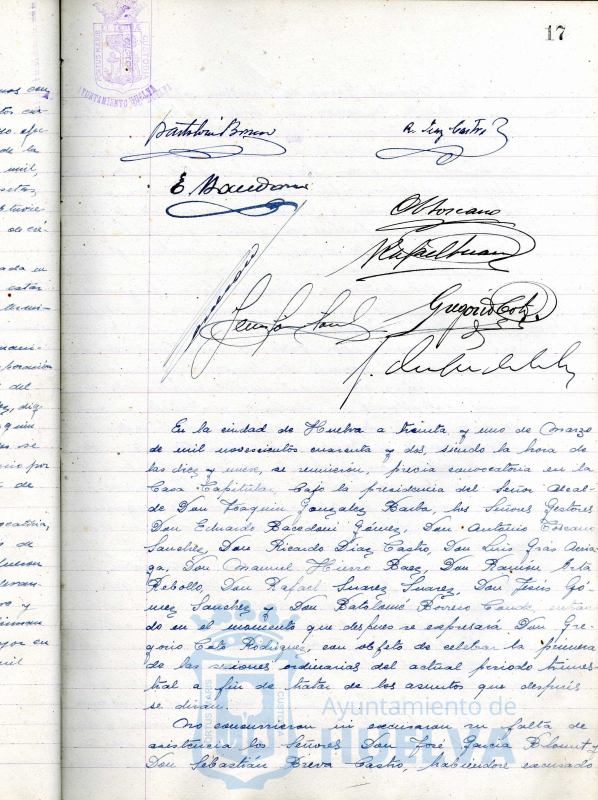 17
AYUNTAMIENTO HUELVA
R. Díaz Castro
E. Bacedoni
A Toscano
Rafael Suarez
Gregorio Coto
En la ciudad de Huelva a treinta y uno de Marzo
de mil novescientos cuarenta y dos, siendo la hora de
las diez y nueve, se reunieron, previa convocatoria en la
Casa Capitular, bajo la presidencia del Señor Alcal-
de Don Joaquin Gonzalez Barba, los Señores Gestores
Don Eduardo Bacedoni Gómez, Don Antonio Toscano
Sanchez, Don Ricardo Díaz Castro, Don Luis Gras
ga, Don Manuel Hierro Baez, Don Ramón
Rebollo, Don Rafael Suarez Suarez, Don Jesús Gó-
mez Sanchez y Don Batolomé Borrero Conde, entran-
do en el momento que despues se expresará Don Gre-
gorio Coto Rodriguez, con objeto de celebrar la primera
de las sesiones ordinarias del actual periodo trimes-
tral a fin de tratar de los asuntos que después
se dirán.
No concurrieron ni excusaron su falta de
asistencia los Señores Don José Garcia y
Don Sebastián Breva Castro, habiendose excusado
Ayuntamiento de
HUELVA